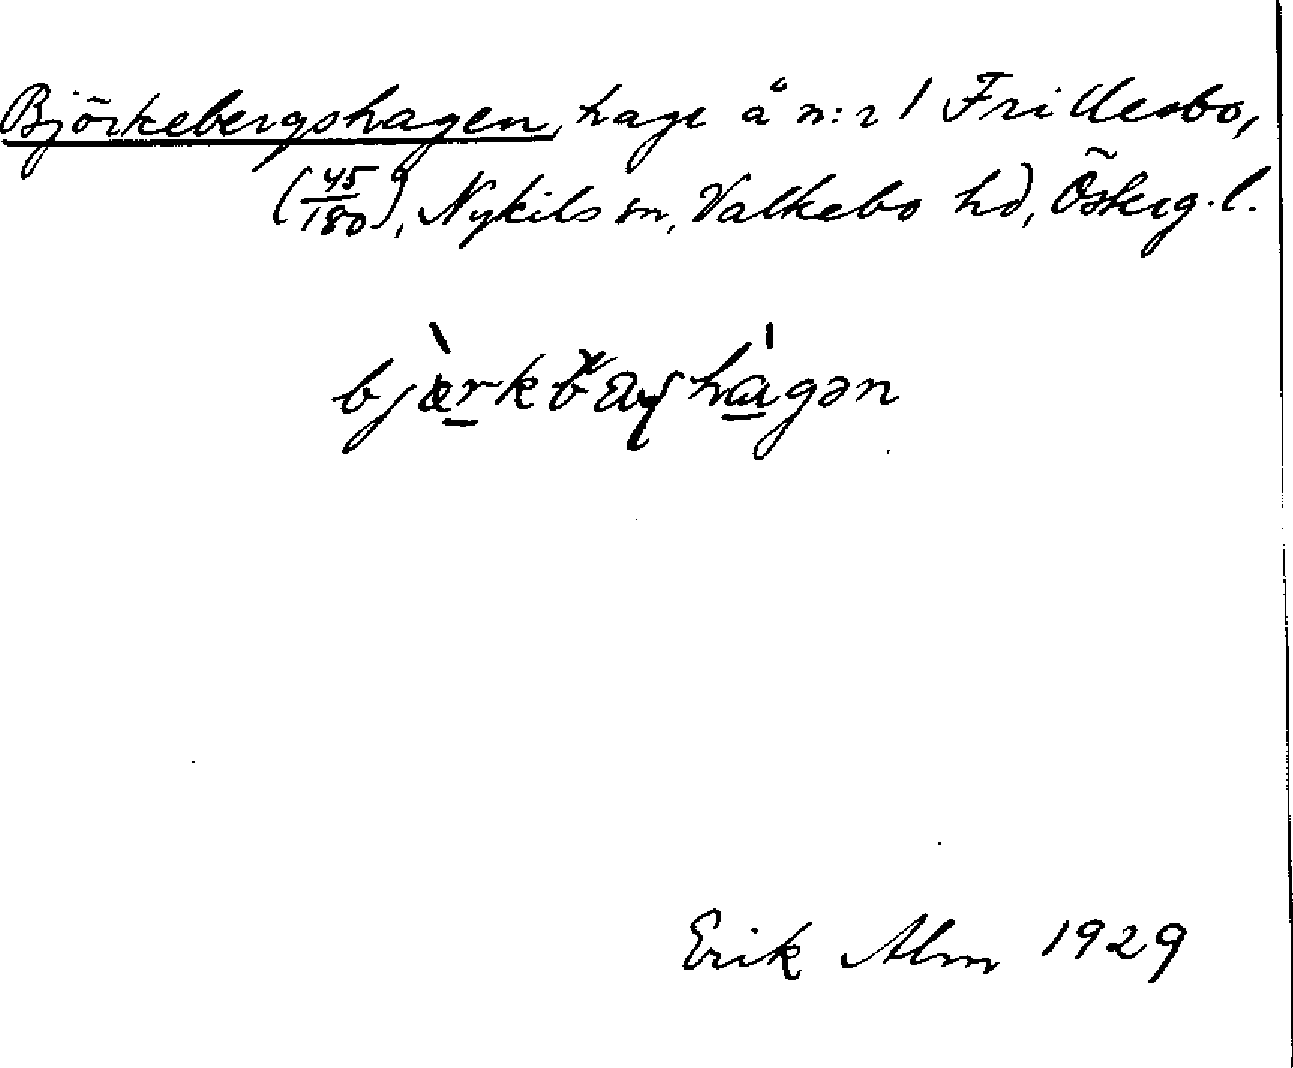 Björkebergshagen, hage å n:r 1 Frillesbo,
(45/180), Nykils sn, Valkebo hd, Österg. l.
Erik Alm 1929